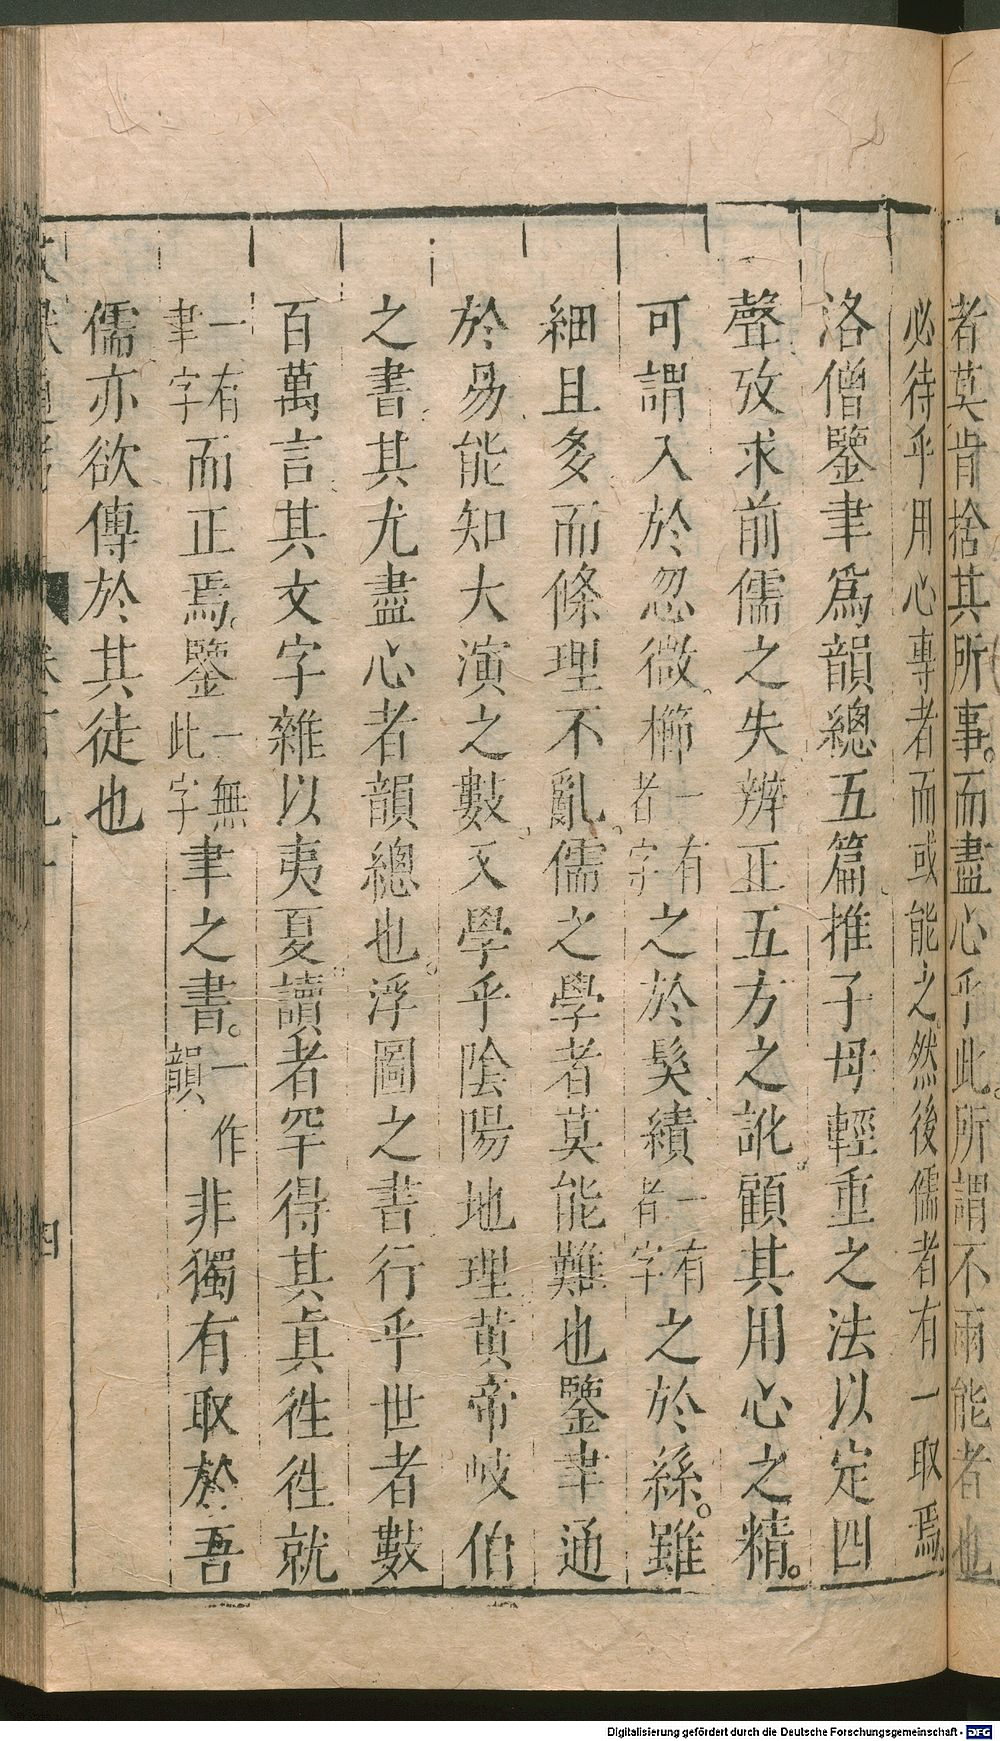 者莫肯捨其所事。而盡心乎此。所謂不雨能者也
必待乎用心專者而或能之。然後儒者有一取焉。
洛僧鑒聿爲韻總五篇推子母輕重之法以定四
聲攷求前儒之失辨正五方之訛顧其用心之精。
可謂入於忽微櫛一有者字之於髮績一有者字之於絲。雖
細且多而條理不亂。儒之學者莫能難也鑒聿通
於易能知大演之數又學乎陰陽地理黃帝岐伯
之書其尤盡心者韻總也。浮圖之書行乎世者數
百萬言其文字雜以夷夏讀者罕得其眞徃徃就
一有聿字而正焉。鑒一無此字聿之書。一作韻非獨有取於吾
儒亦欲傳於其徒也
四
Digitalisierung gefördert durch die Deutsche Forschungsgemeinschaft - DFG